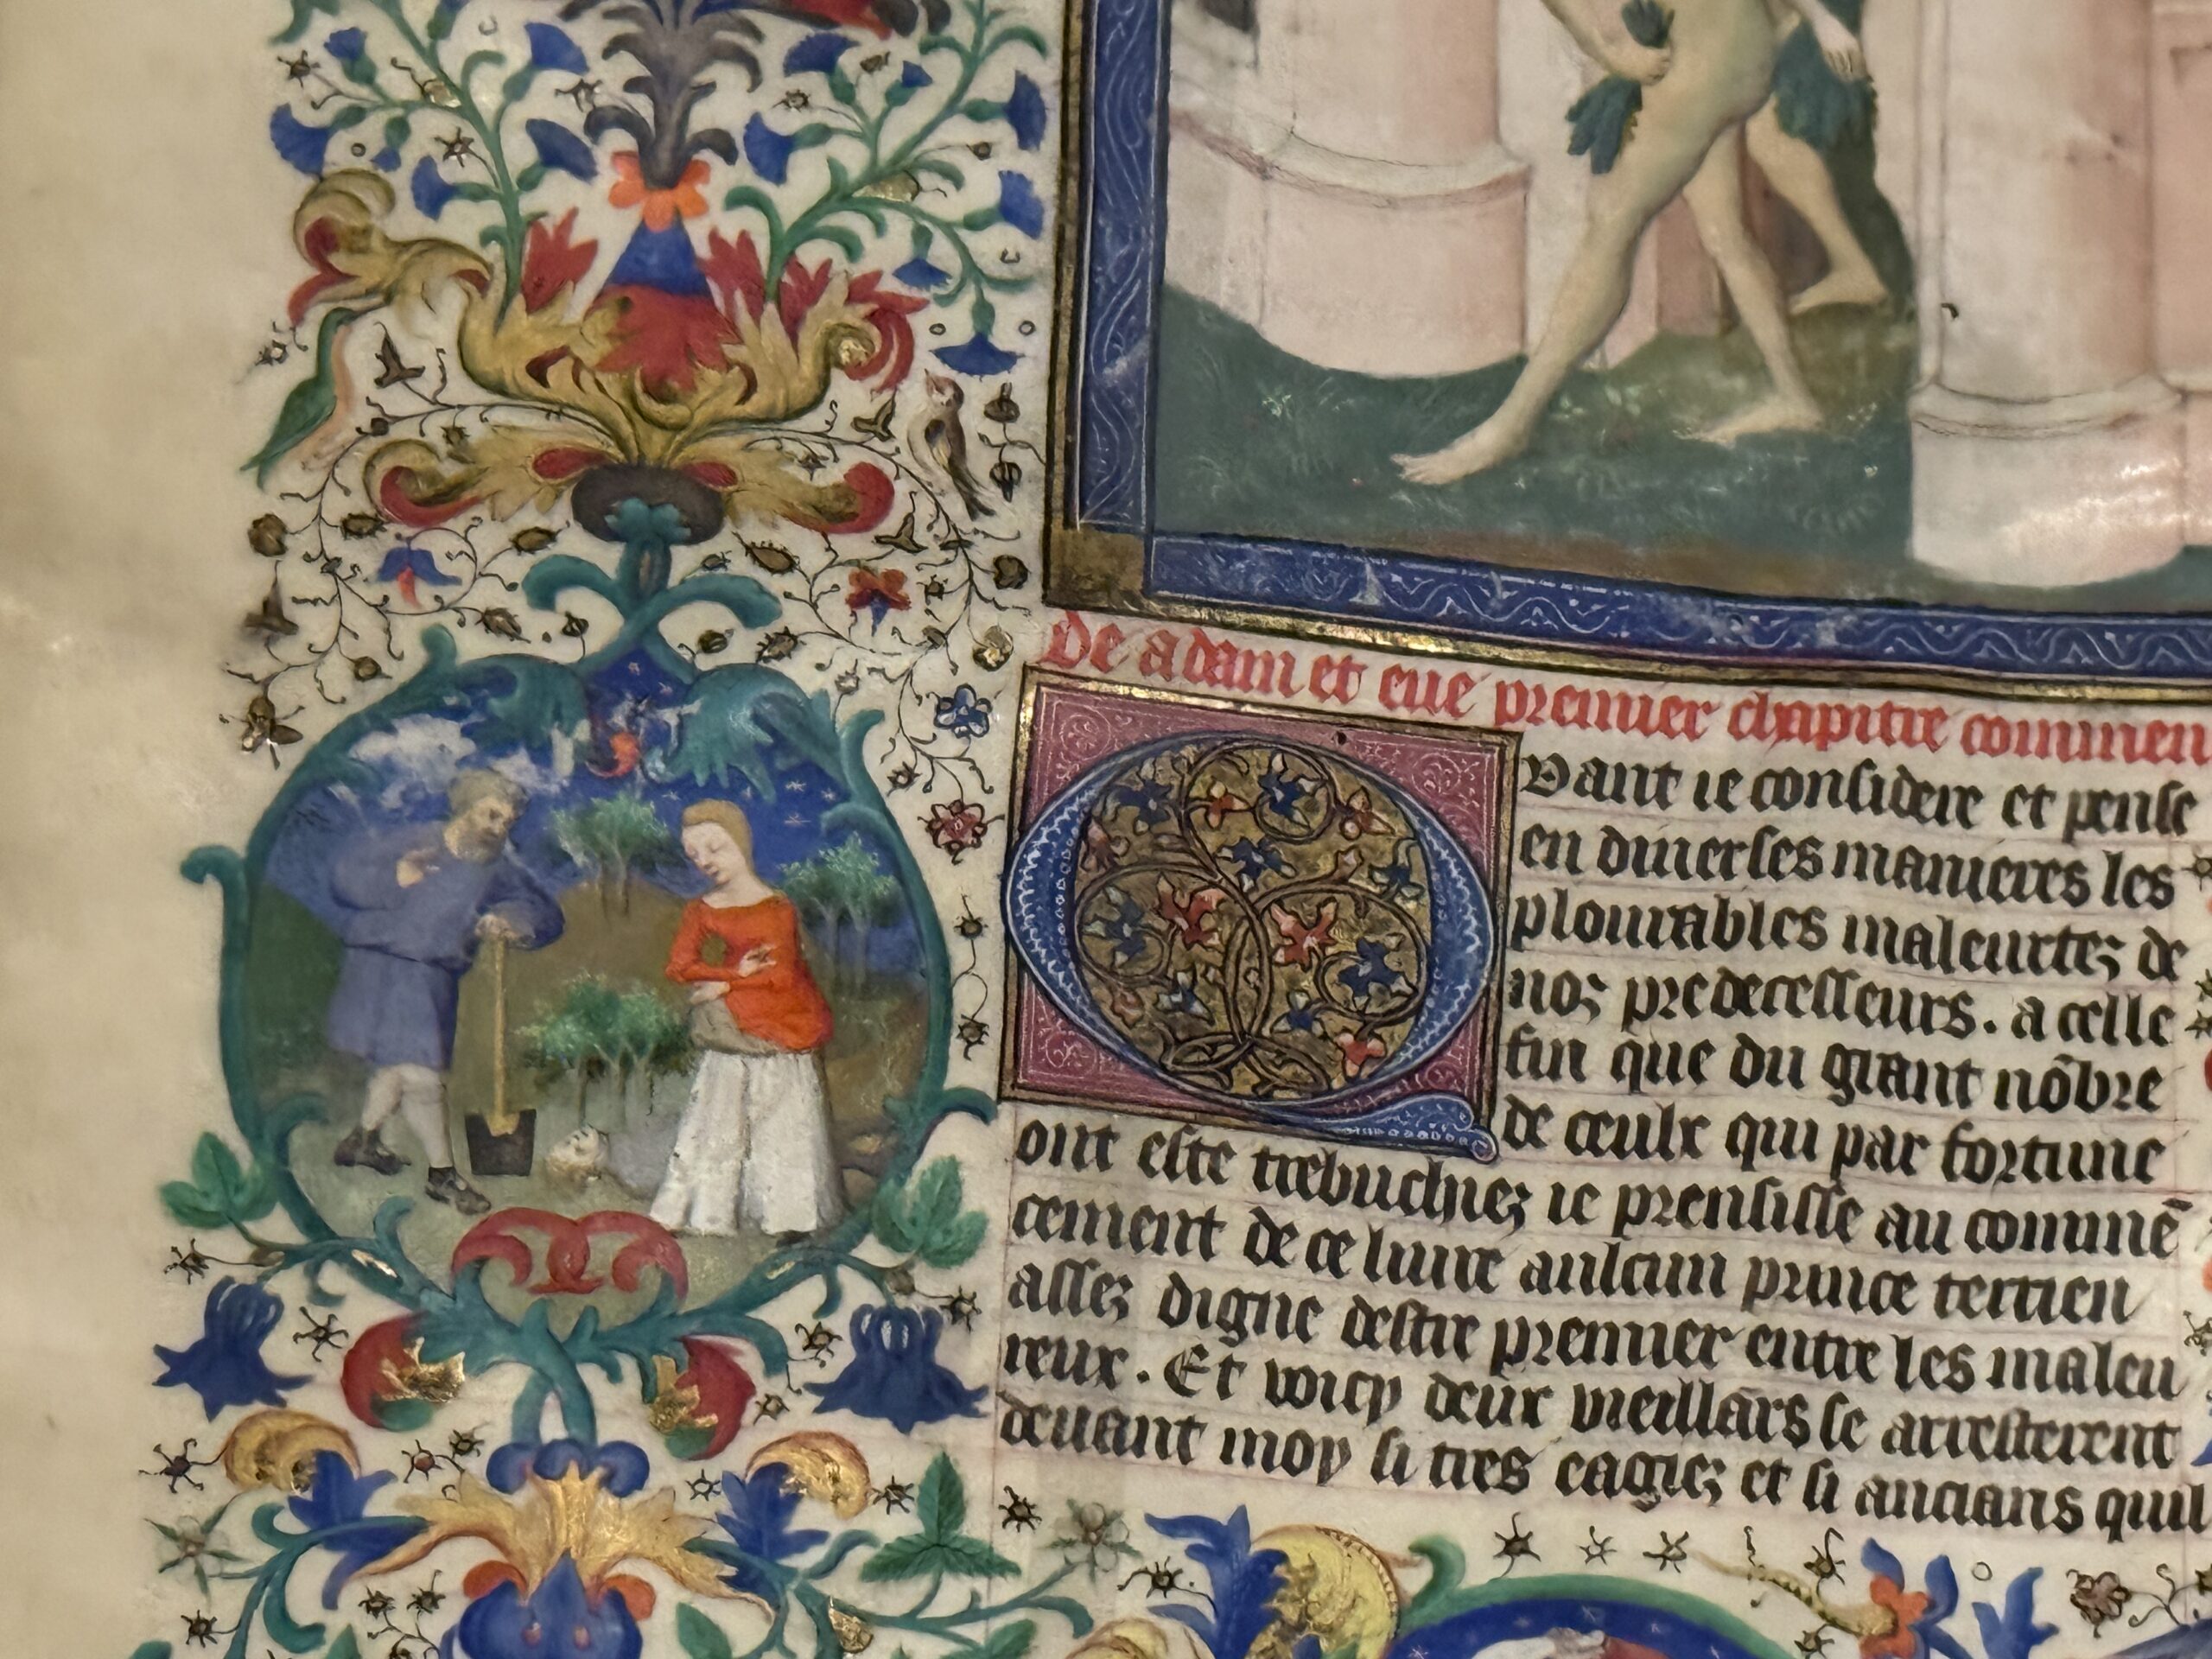 De adam et eue premier chapitre commen
Quant ie considere et pense
en diuerses manieres les
plourables maleurtez de
noz predecesseurs. a celle
fin que du grant nõbre
de ceulx qui par fortune
ont este trebuchiez ie prensisse au commē
cement de ce liure aulcun prince terrien
assez digne destre premier entre les maleu
reux. Et voicy deux vieillars se arresterent
deuant moy si tres eagiez et si ancians quil